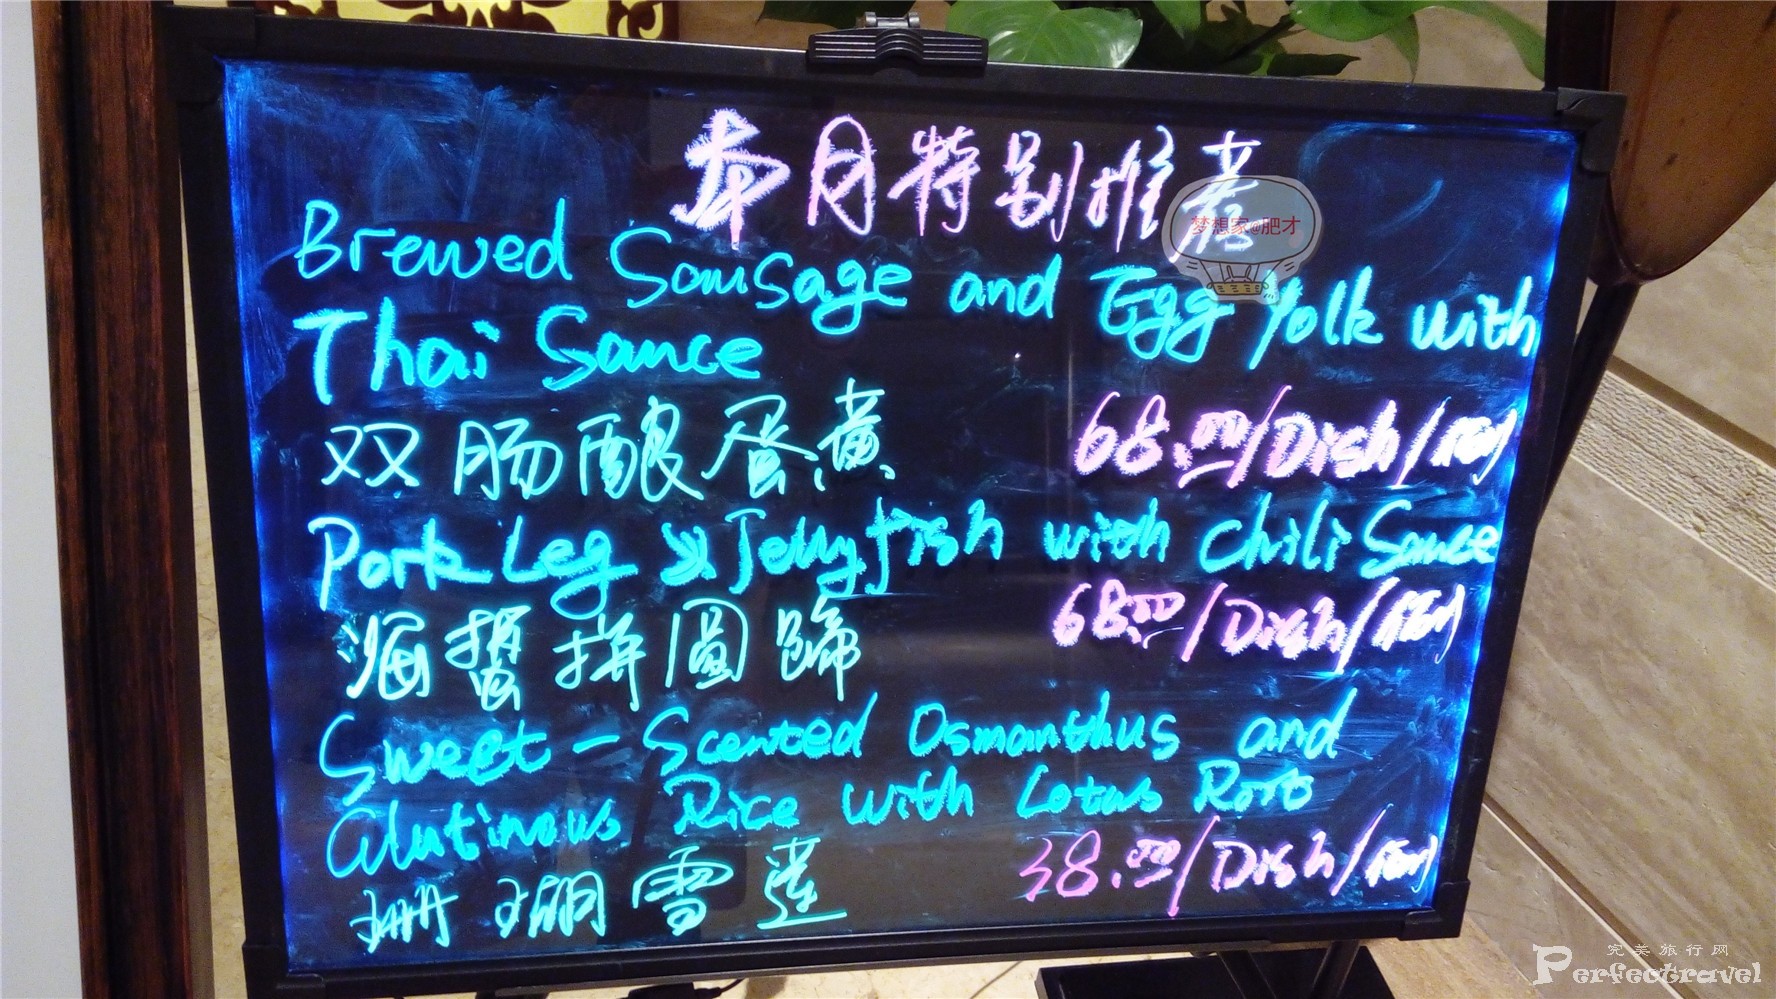 本月特别推荐
梦想家@肥才
Brewed Sausage and Egg Yolk with
Thai Sauce
双肠酿蛋黄 68.00/Dish/例
Pork Leg & Jellyfish with Chili Sauce
海蜇拼圓蹄 68.00/Dish/例
Sweet-Scented Osmanthus and
Glutinous Rice with Lotus Root
珊瑚雪莲 38.00/Dish/例
完美旅行网
Perfectravel